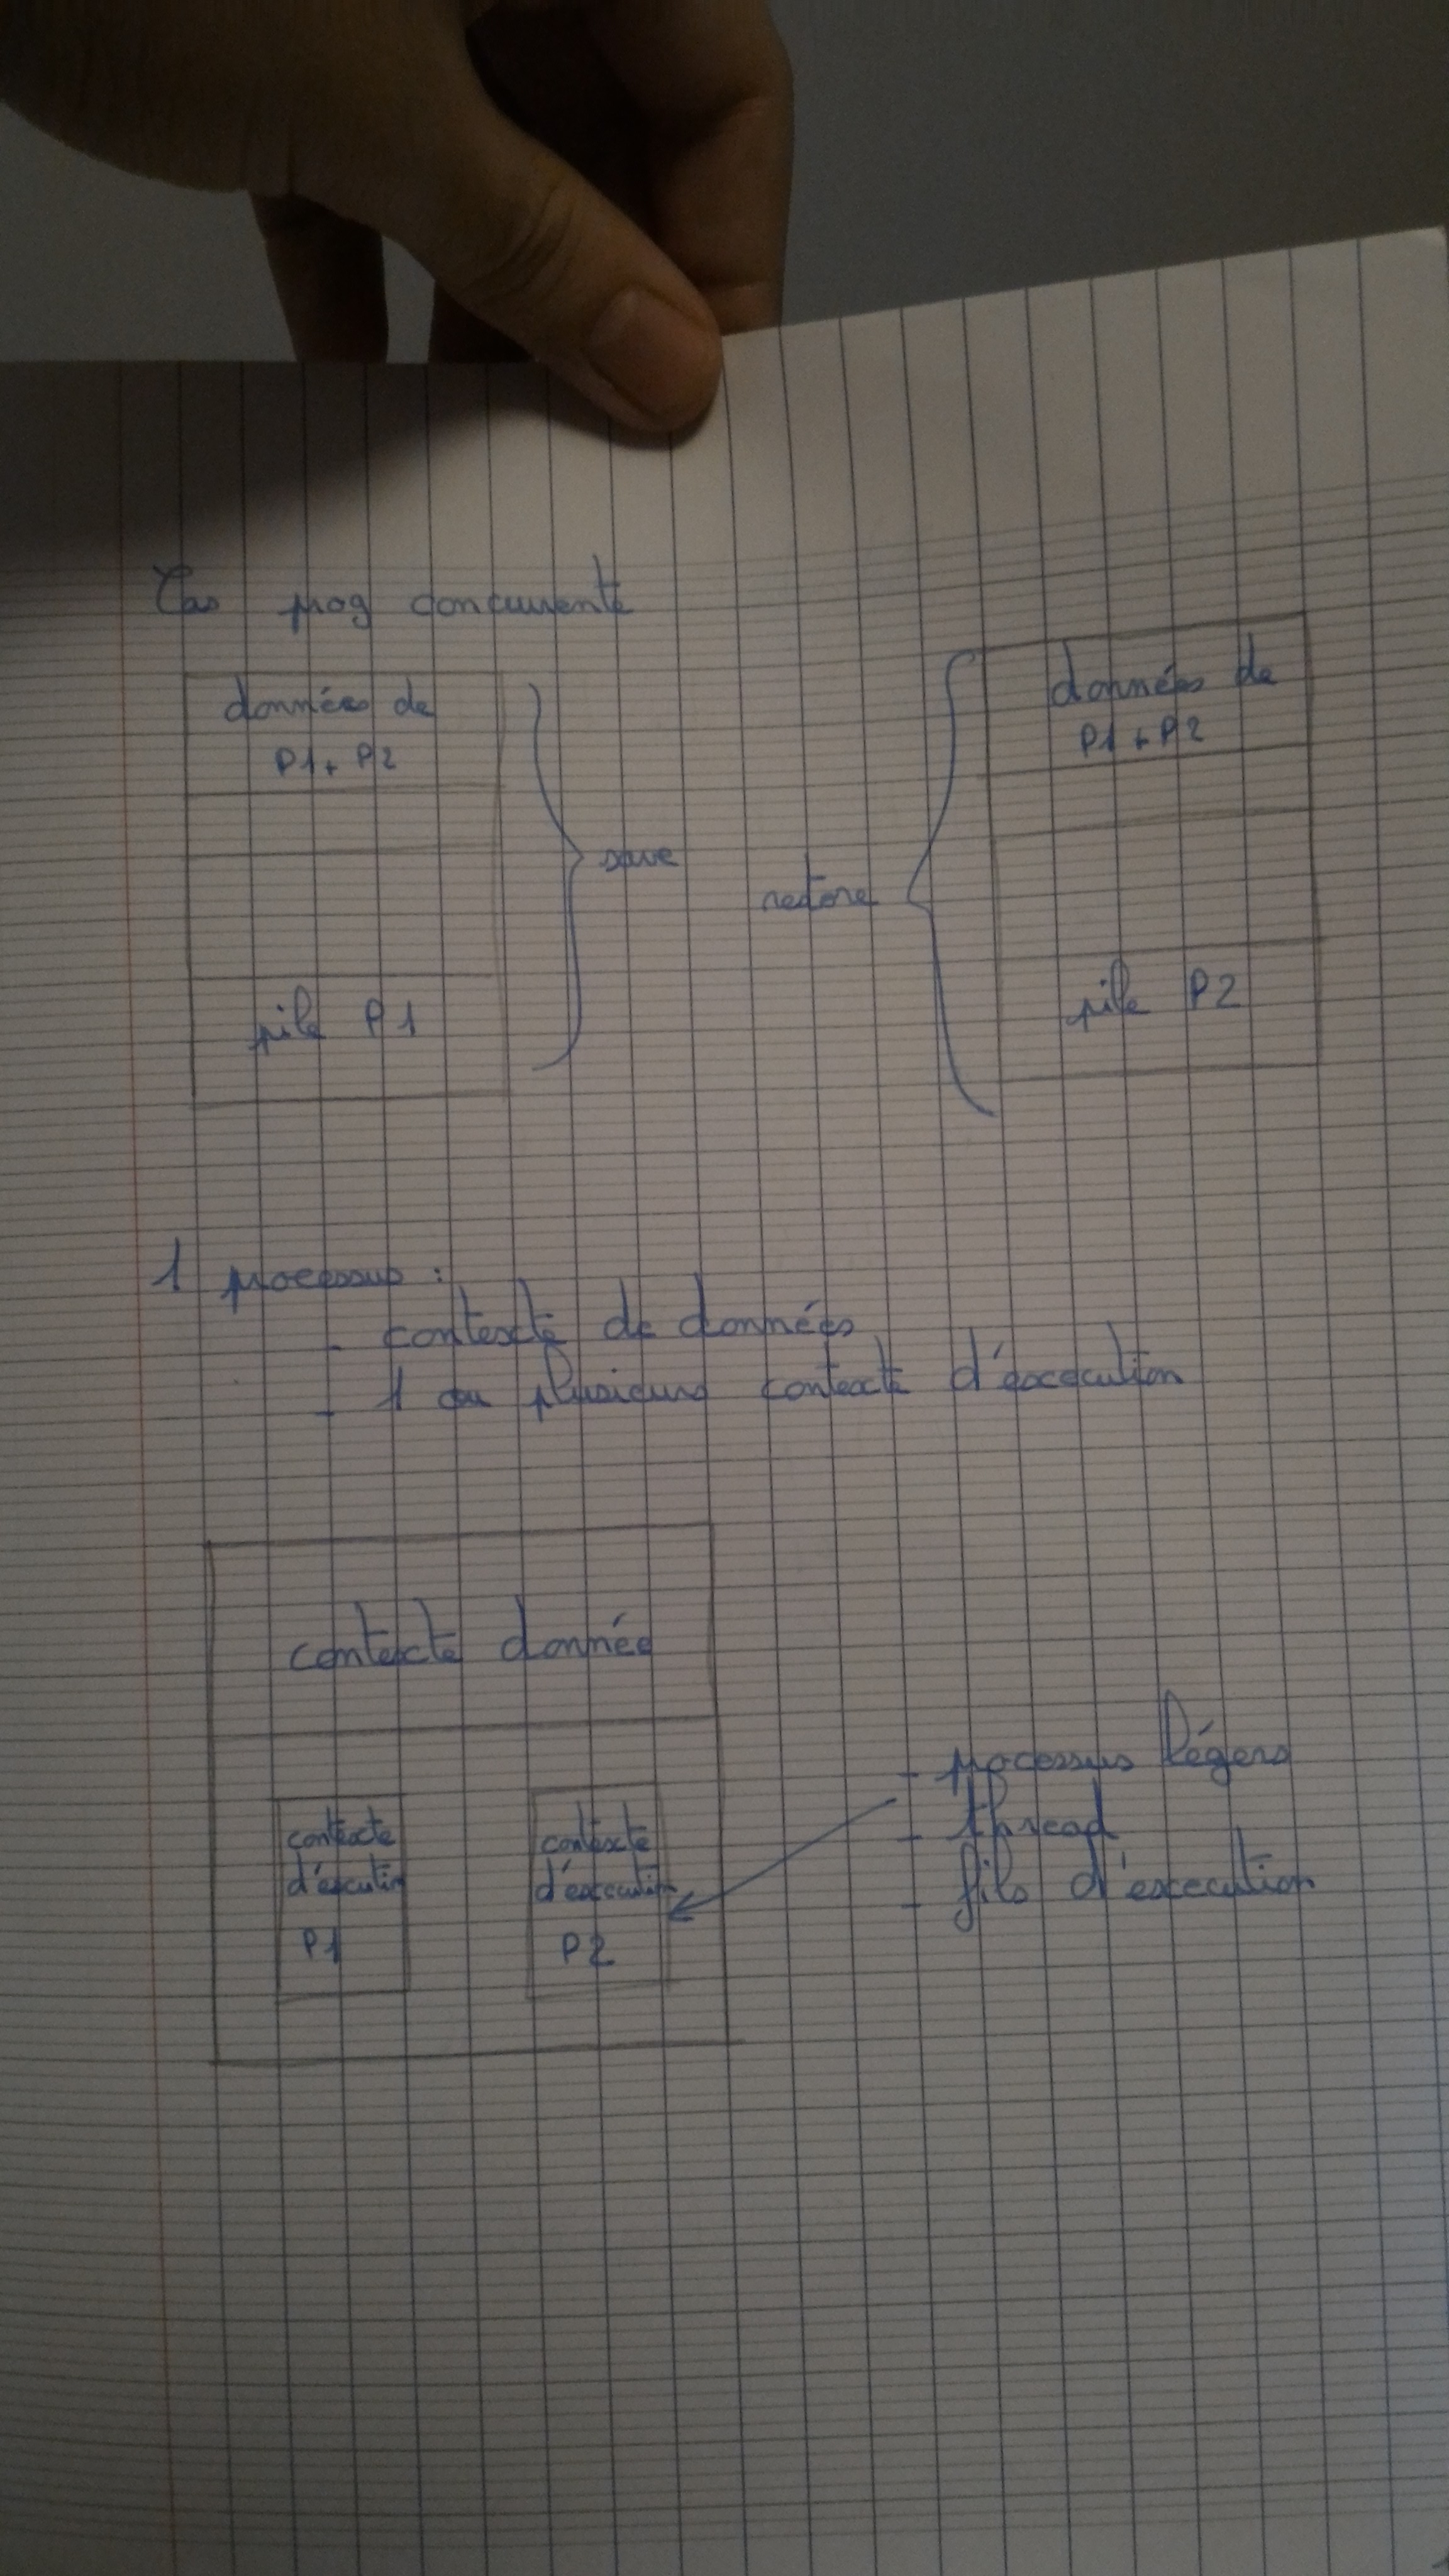 Cas prog concurrente
données de
P1 + P2
save
pile P1
données de
P1 + P2
restore
pile P2
1 processus :
- contexte de données
- 1 ou plusieurs contexte d'éxecution
contexte donnée
contexte
d'éxecution
P1
contexte
d'éxecution
P2
- processus légers
- thread
- fils d'execution